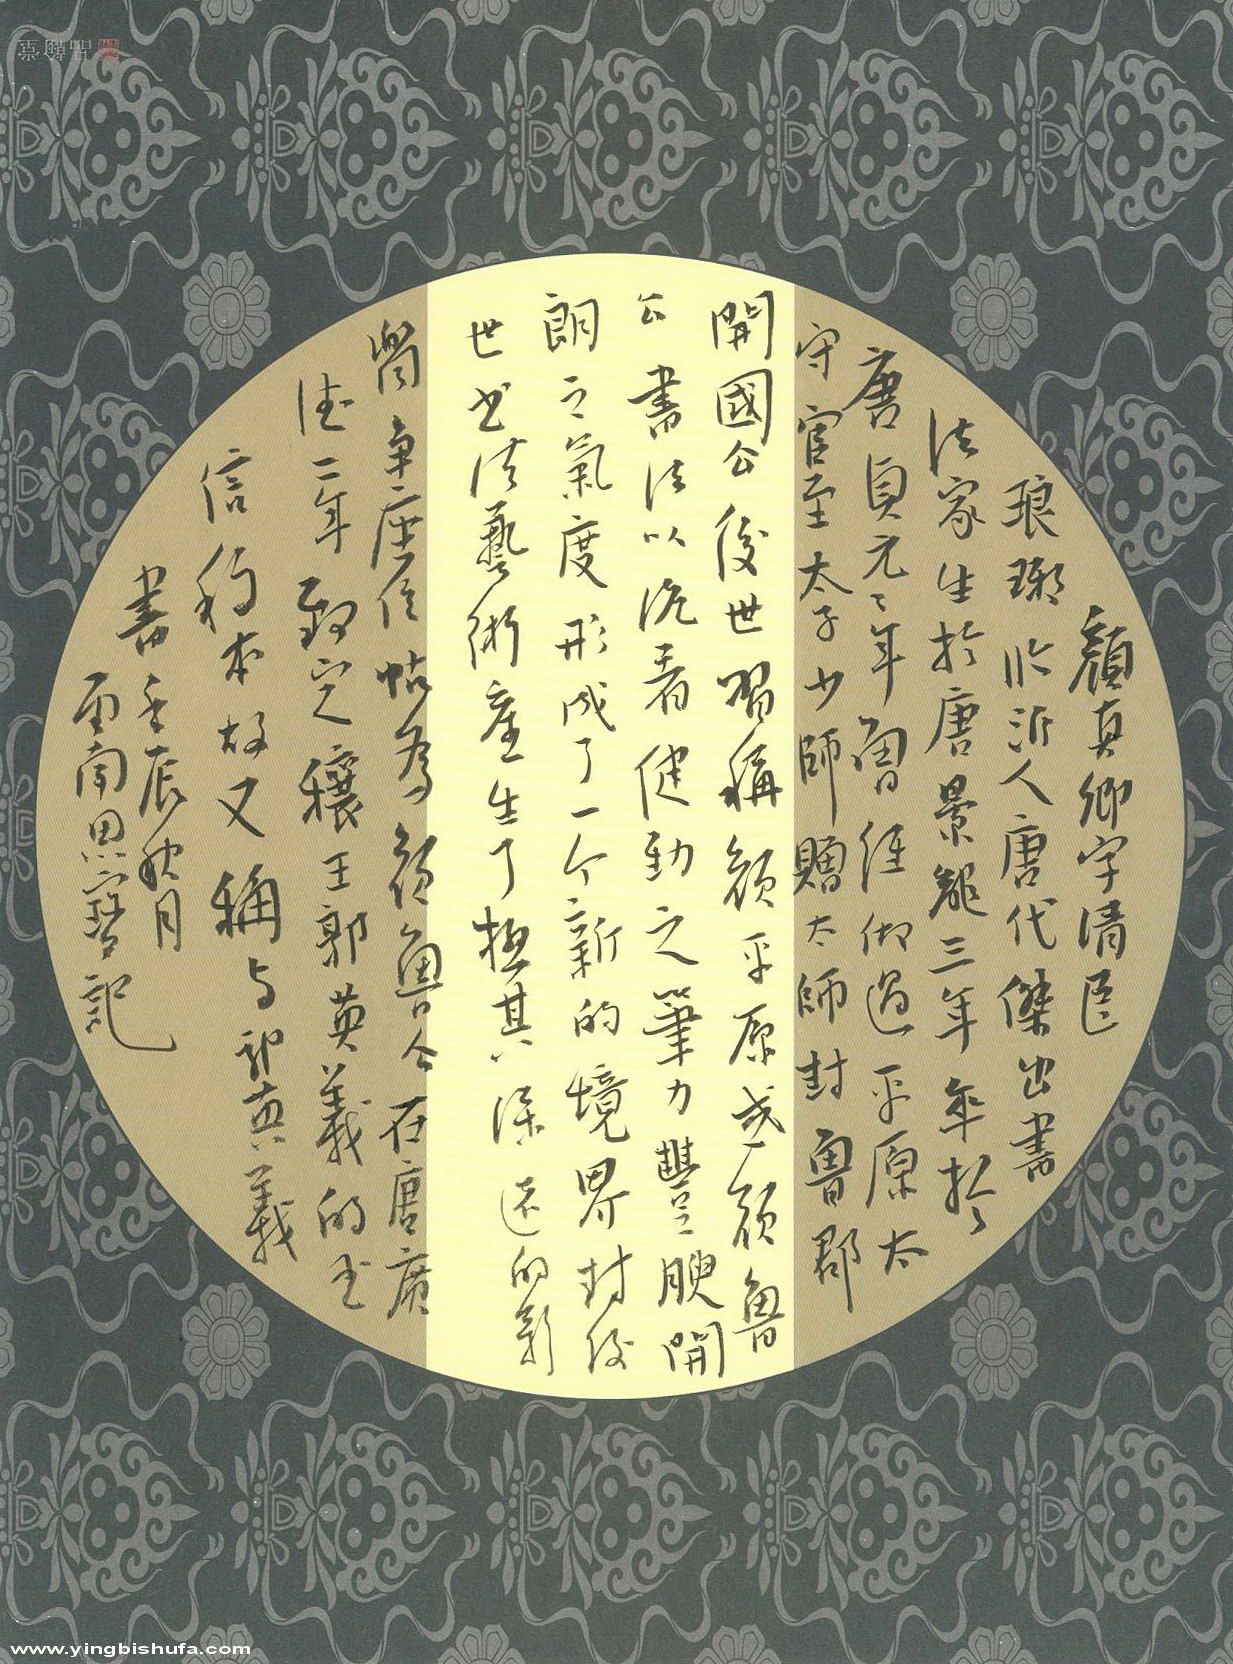 顏真卿字清臣
琅琊臨沂人唐代傑出書
法家生於唐景龍三年卒於
唐貞元元年曾任御過平原太
守官至太子少師贈太師封魯郡
開國公後世習稱顏平原或顏魯
公書法以沉着健勁之筆力豐腴開
朗之氣度形成了一个新的境界對後
世书法藝術產生了極其深遠的影
響争座位帖為顏魯公在唐廣
德二年致定襄王郭英義的书
信稿本故又稱与郭英義
書壬辰秋月
雲南思寶記
www.yingbishufa.com